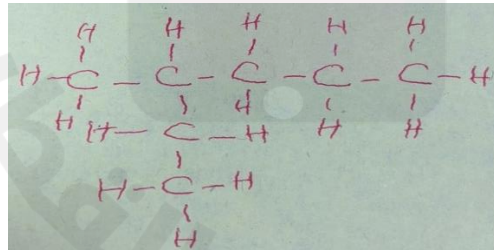 H H H H H
H-C-C-C-C-C-H
H H H H
H-C-H
H-C-H
H